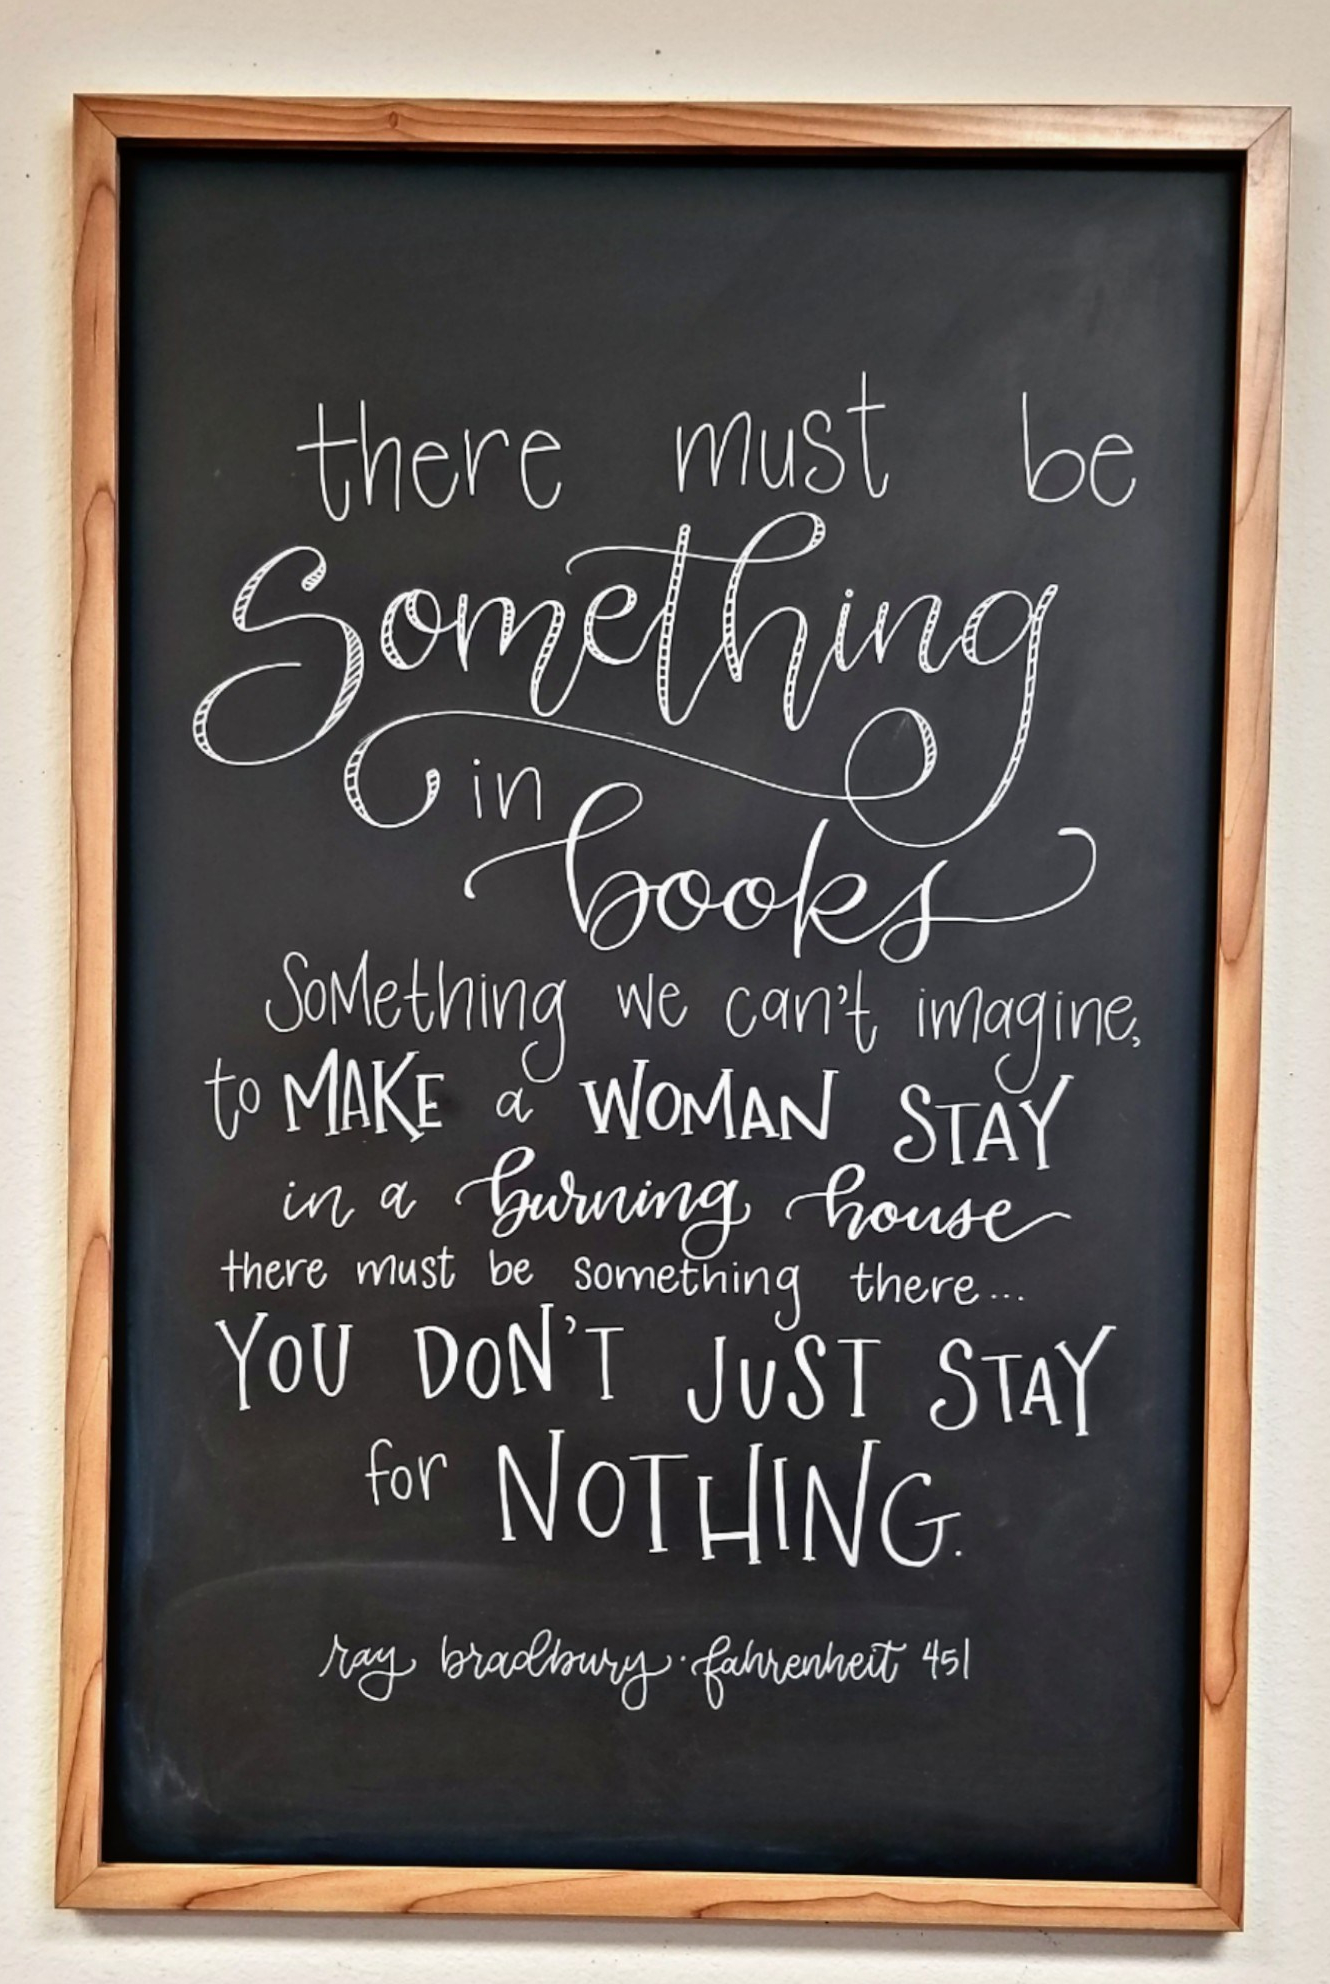 there must be
Something
in
books
Something we can't imagine,
to MAKE a WOMAN STAY
in a burning house
there must be something there...
YOU DON'T JUST STAY
for NOTHING.
ray bradbury · fahrenheit 451